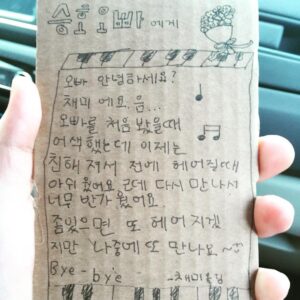 승현오빠에게
오빠 안녕하세요?
채미에요. 음...
오빠를 처음 봤을때
어색했는데 이제는
친해져서 전에 헤어질때
아쉬웠어요 근데 다시만나서
너무 반가웠어요.
좀있으면 또 헤어지겠
지만 나중에 또 만나요~
Bye-bye
-채미올림